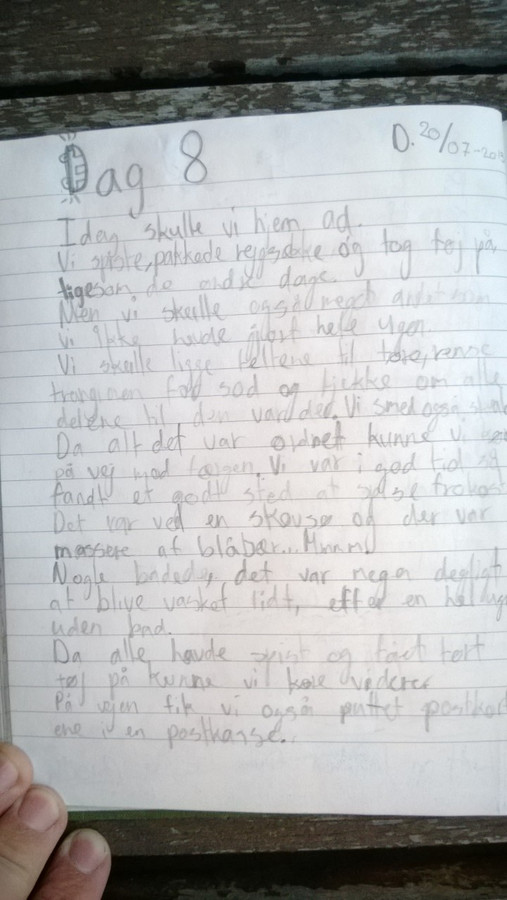 Dag 8
D. 20/07-20
Idag skulle vi hjem ad.
Vi spiste, pakkede rejgsække og tog tøj på
ligesom de andre dage.
Men vi skulle også meget andet som
vi ikke havde gjort hele ugen.
Vi skulle ligge teltene til tøre, rense
trangiaen for sod og tjekke om alle
delene til den var der. Vi smed også
Da alt det var ordnet kunne vi
på vej mod færgen. Vi var i god tid og
fandt et godt sted at spise frokost
Det var ved en skovsø og der var
massere af blåbær... Mmm
Nogle badede, det var mega dejligt
at blive vasket lidt, efter en hel uge
uden bad.
Da alle havde spist og fået tørt
tøj på kunne vi køre videre
På vejen fik vi også puttet postkort
ene i en postkasse..